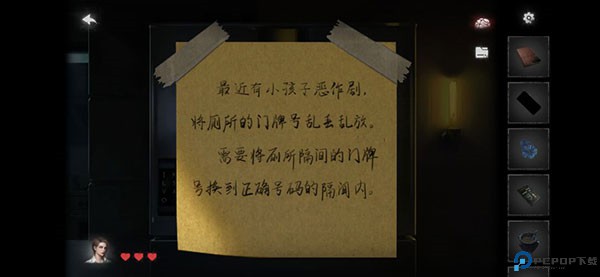 最近有小孩子恶作剧，
将厕所的门牌号乱丢乱放。
需要将厕所隔间的门牌
号换到正确号码的隔间内。
PCPOP下载